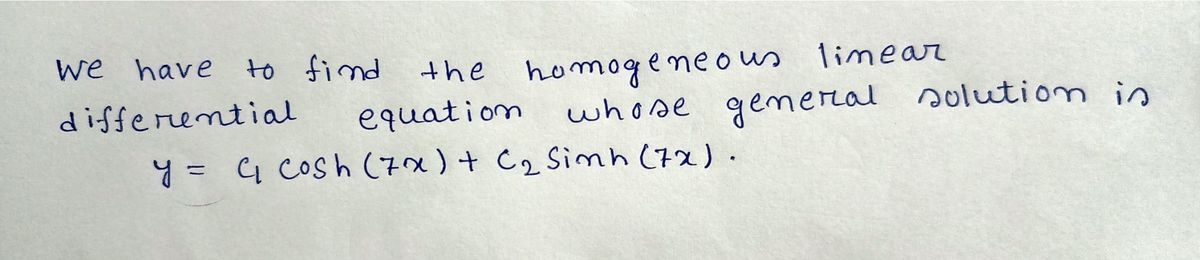 We have to find the homogeneous linear
differential equation whose general solution is
y = C₁ cosh (7x) + C₂ Sinh (7x) .